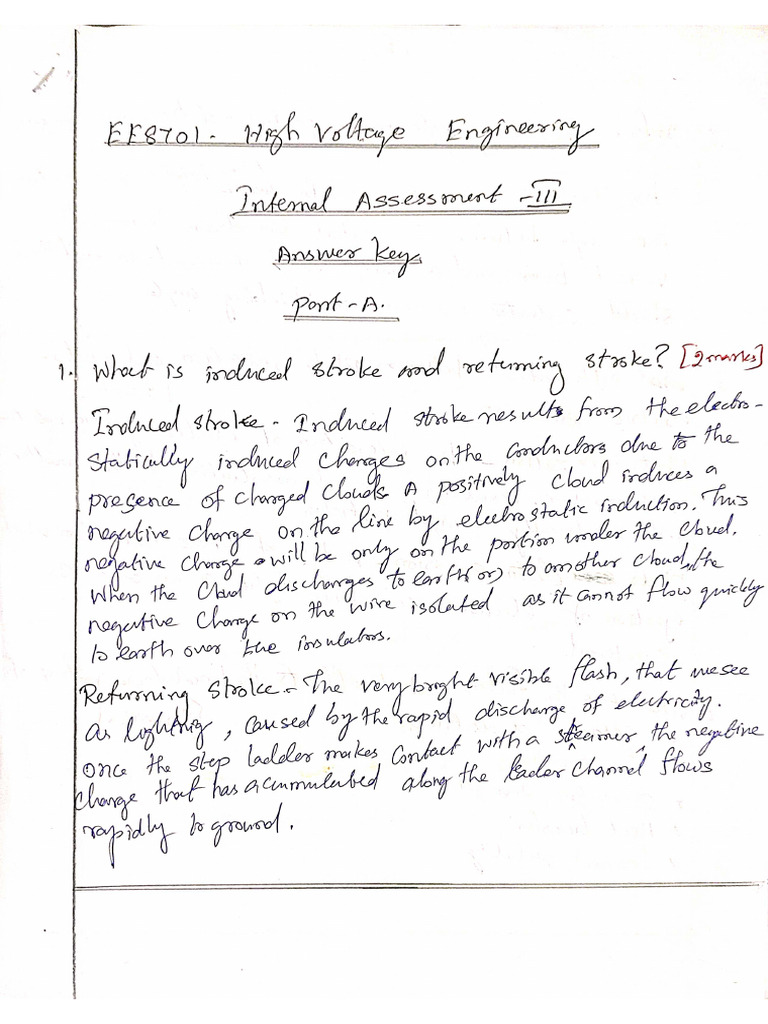 EE8701. High Voltage Engineering
Internal Assessment - III
Answer Key
Part-A.
1. What is induced stroke and returning stroke? [2 marks]
Induced stroke - Induced stroke results from the electro-
statically induced charges on the conductors due to the
presence of charged clouds A positively cloud induces a
negative charge on the line by electrostatic induction. This
negative charge will be only on the portion under the cloud.
When the cloud discharges to earth or to another cloud, the
negative charge on the wire isolated as it cannot flow quickly
to earth over the insulators.
Returning stroke - The very bright visible flash, that we see
as lightning, caused by the rapid discharge of electricity.
Once the step ladder makes contact with a streamer, the negative
charge that has accumulated along the leader channel flows
rapidly to ground.